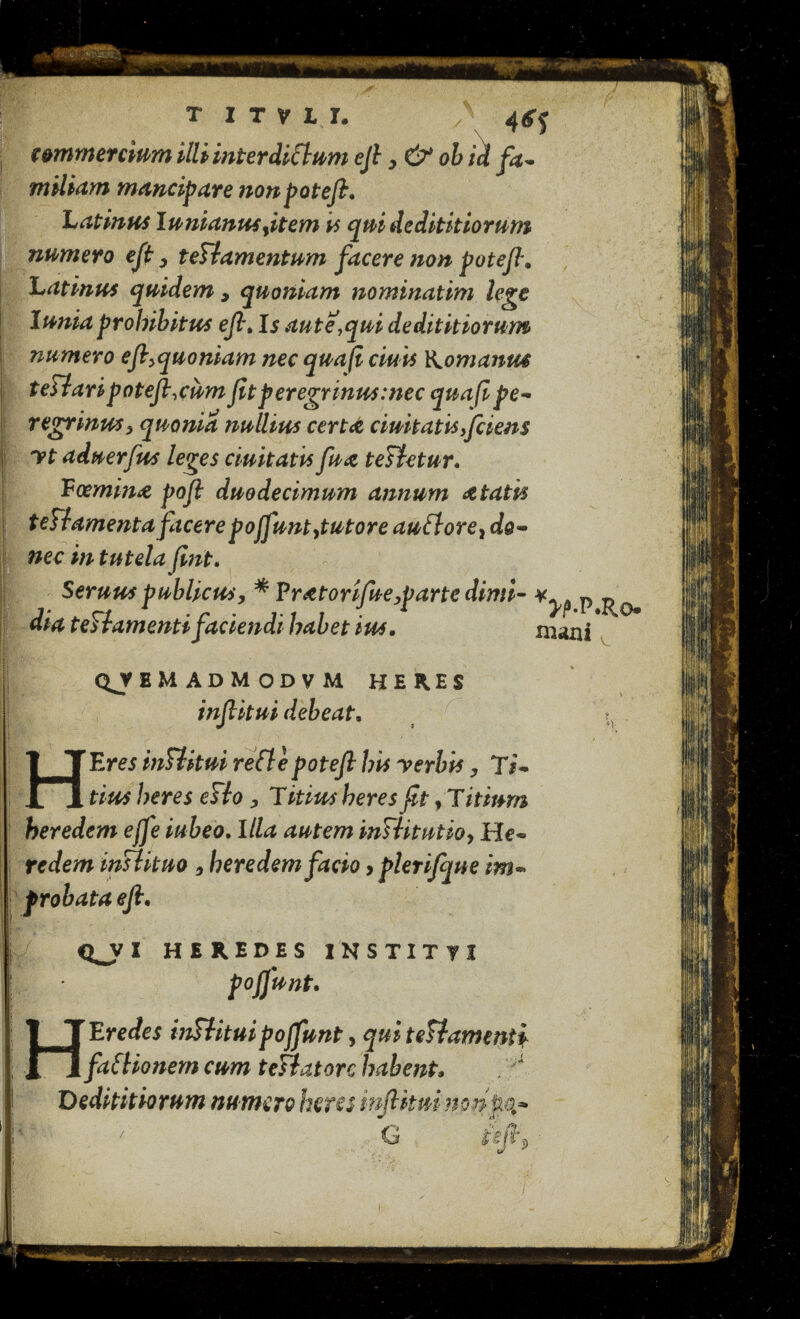 TITVLI. 465
commercium illi interdictum est, & ob id fa-
miliam mancipare non potest.
Latinus Iunianus,item is qui dedititiorum
numero est, testamentum facere non potest.
Latinus quidem, quoniam nominatim lege
Iunia prohibitus est. Is autē,qui dedititiorum
numero est,quoniam nec quasi ciuis Romanus
testari potest,cùm sit peregrinus:nec quasi pe-
regrinus, quoniā nullius certæ ciuitatis,sciens
vt aduersus leges ciuitatis suæ testetur.
Fœminæ post duodecimum annum ætatis
testamenta facere possunt,tutore auctore, do-
nec in tutela sint.
Seruus publicus, * Prætorisue,parte dimi- *γρ.P.Ro-
dia testamenti faciendi habet ius. mani
QVEMADMODVM HERES
institui debeat.
HEres institui rectè potest his verbis, Ti-
tius heres esto, Titius heres sit, Titium
heredem esse iubeo. Illa autem institutio, He-
redem instituo, heredem facio, plerisque im-
probata est.
QVI HEREDES INSTITVI
possunt.
HEredes institui possunt, qui testamenti
factionem cum testatore habent.
Dedititiorum numero heres institui non po-
G test,